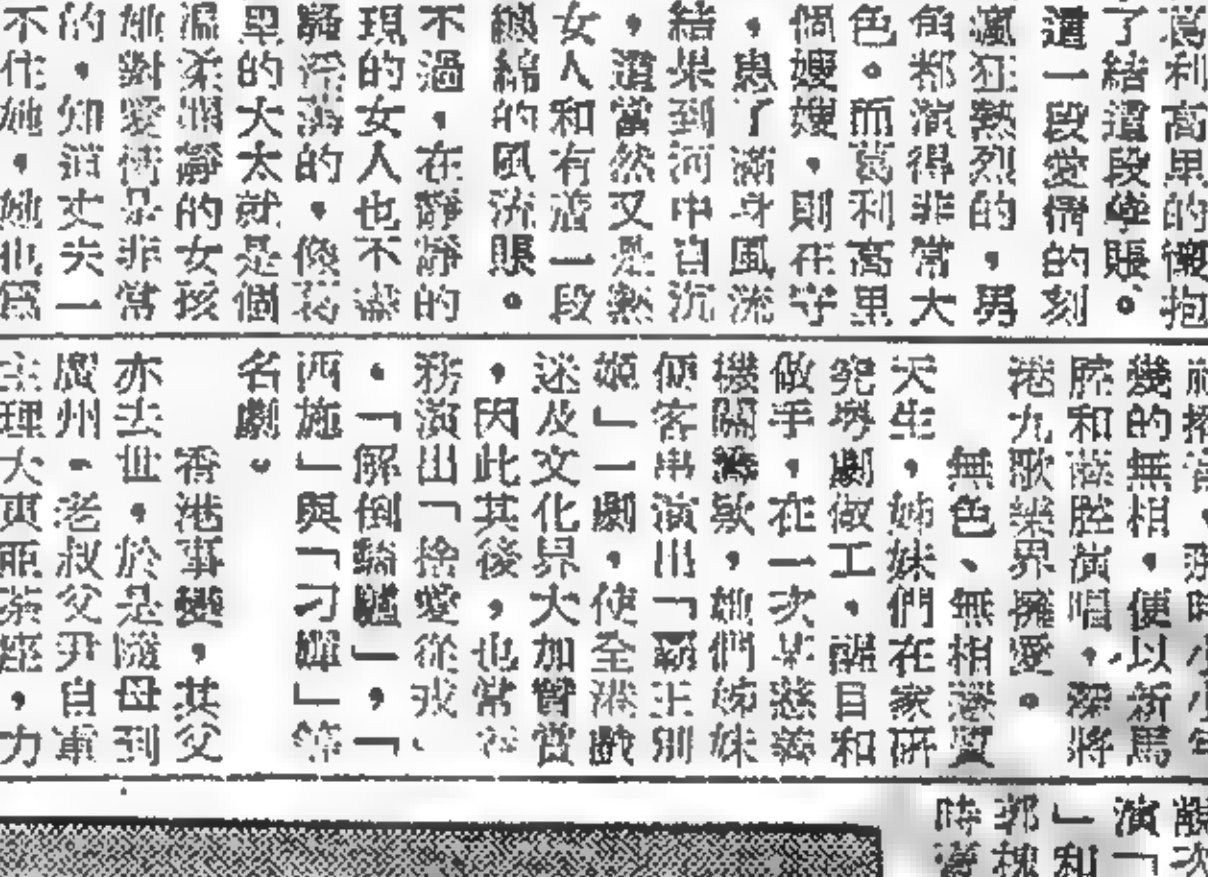 葛利高里的懷抱
了結這段孽賬。
這一段愛情的刻
瘋狂熱烈的，男
角都演得非常大
色。而葛利高里
個嫂嫂，則在守
，患了滿身風流
結果到河中自沉
，這當然又是熱
女人和有這一段
纏綿的風流賬。
不過，在靜靜的
現的女人也不
的，像葛
里的太太就是個
溫柔嫻靜的女孩
她對愛情是非常
的，知道丈夫一
不住她，她也為
時小小年
幾的無相，便以新馬
腔和薛腔演唱，深將
港九歌樂界擁愛。
無色、無相麗質
天生，姊妹們在家研
究粵劇做工，醒目和
做手，在一次某慈善
機關籌款，她們姊妹
倆客串演出「霸王別
姬」一劇，使全港戲
迷及文化界大加讚賞
，因此其後，也常
務演出「捨愛從戎
，「解倒騎驢」，「
西施」與「刁蟬」等
名劇。
香港事變，其父
亦去世，於是隨母到
廣州，老叔父尹自重
主理大東亞茶座，力
觀次
演「
」和
郭槐
時